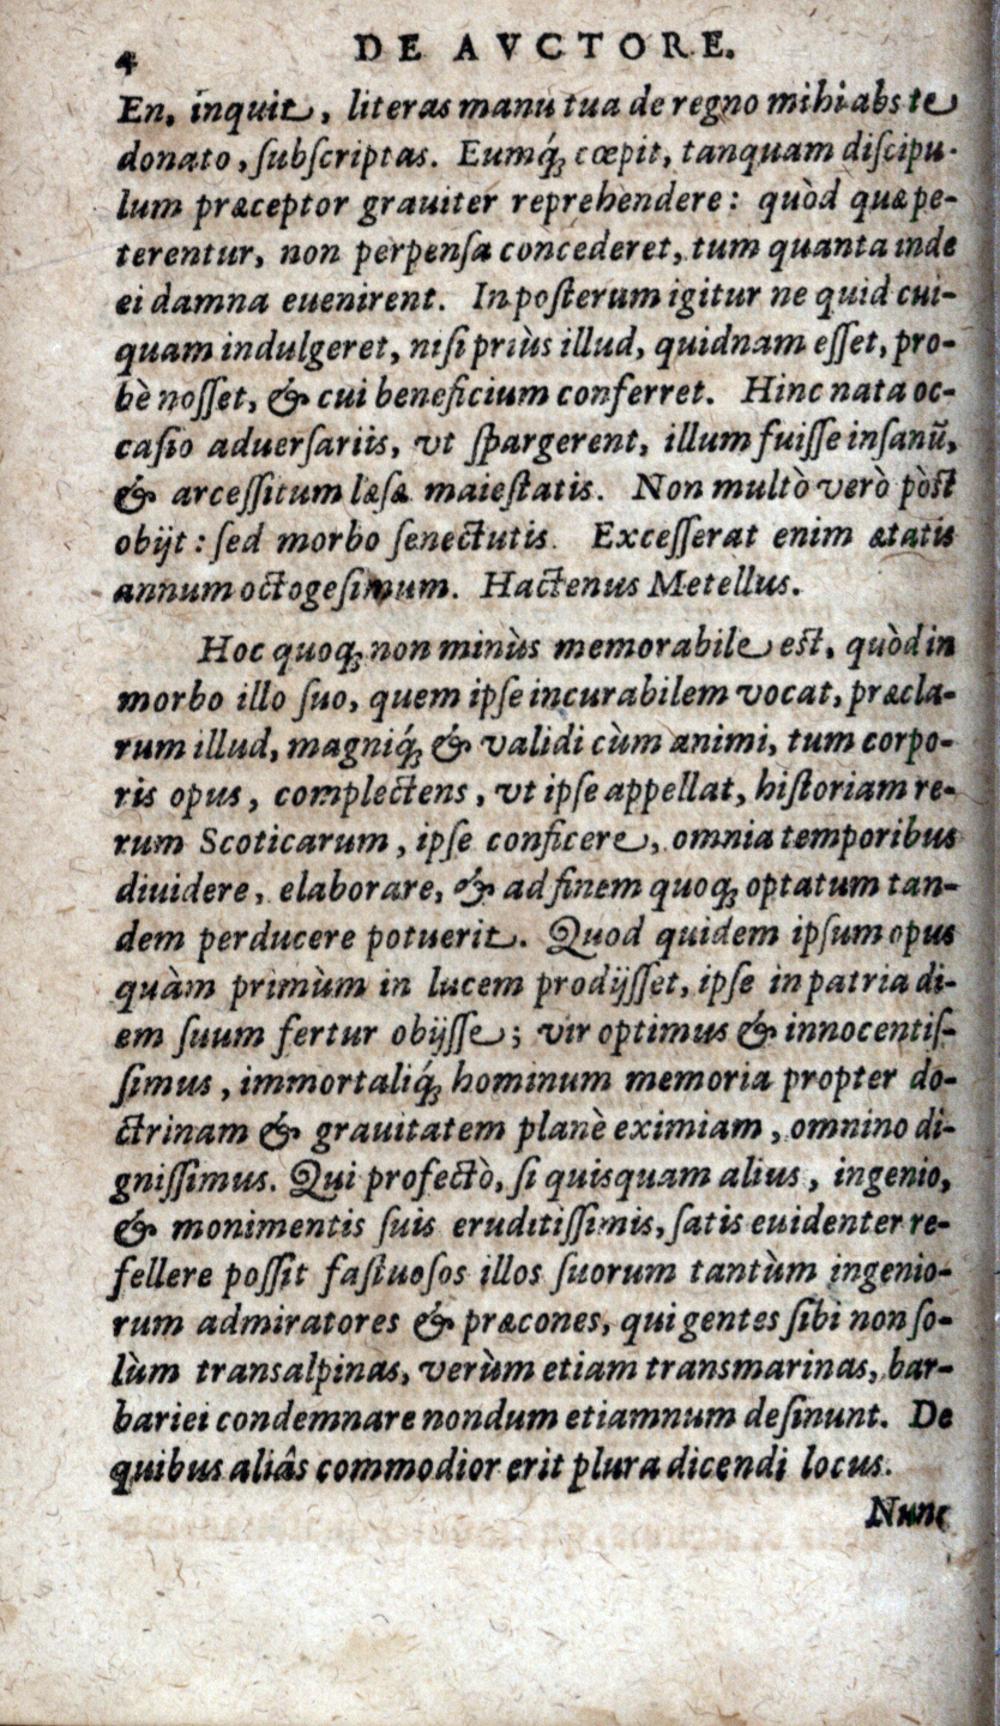 4 DE AVCTORE.
En, inquit, literas manu tua de regno mihi abs te
donato, ſubſcriptas. Eumq́ue cœpit, tanquam diſcipu-
lum præceptor grauiter reprehendere: quòd quæ pe-
terentur, non perpenſa concederet, tum quanta inde
ei damna euenirent. In poſterum igitur ne quid cui-
quam indulgeret, niſi priùs illud, quidnam eſſet, pro-
bè noſſet, & cui beneficium conferret. Hinc nata oc-
caſio aduerſariis, vt ſpargerent, illum fuiſſe inſanū,
& arceſſitum læſæ maieſtatis. Non multò verò pòſt
obijt: ſed morbo ſenectutis. Exceſſerat enim ætatis
annum octogeſimum. Hactenus Metellus.
Hoc quoq; non minùs memorabile eſt, quòd in
morbo illo ſuo, quem ipſe incurabilem vocat, præcla-
rum illud, magniq́; & validi cùm animi, tum corpo-
ris opus, complectens, vt ipſe appellat, hiſtoriam re-
rum Scoticarum, ipſe conficere, omnia temporibus
diuidere, elaborare, & ad finem quoq; optatum tan-
dem perducere potuerit. Quod quidem ipſum opus
quàm primùm in lucem prodijſſet, ipſe in patria di-
em ſuum fertur obijſſe; vir optimus & innocentiſ-
ſimus, immortaliq́; hominum memoria propter do-
ctrinam & grauitatem planè eximiam, omnino di-
gniſſimus. Qui profectò, ſi quisquam alius, ingenio,
& monimentis ſuis eruditiſſimis, ſatis euidenter re-
fellere poſſit faſtuoſos illos ſuorum tantùm ingenio-
rum admiratores & præcones, qui gentes ſibi non ſo-
lùm transalpinas, verùm etiam transmarinas, bar-
bariei condemnare nondum etiamnum deſinunt. De
quibus aliâs commodior erit plura dicendi locus.
Nunc